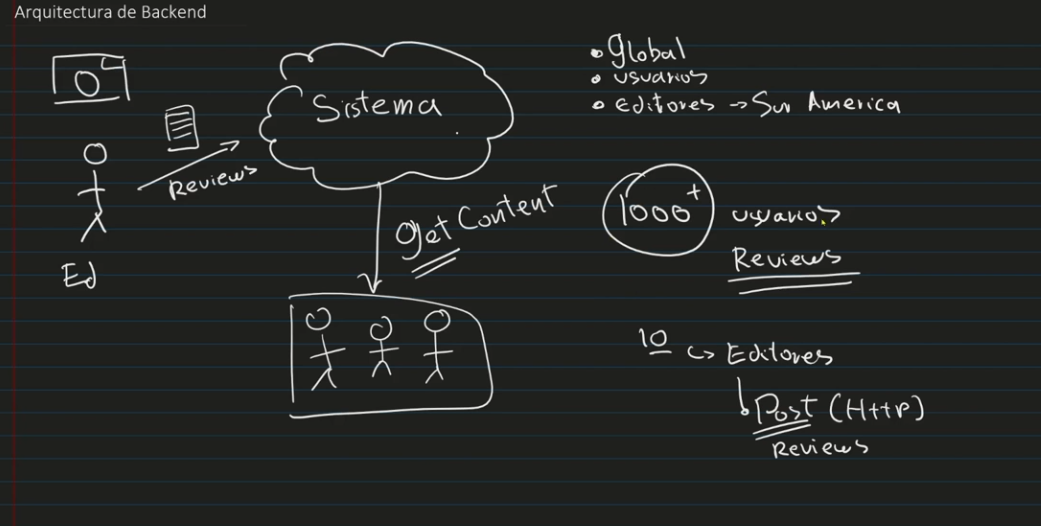 Arquitectura de Backend
Sistema
Reviews
Ed
Get Content
• Global
• usuarios
• Editores → Sur America
1000+ usuarios
Reviews
10 ↪ Editores
Post (Http)
Reviews